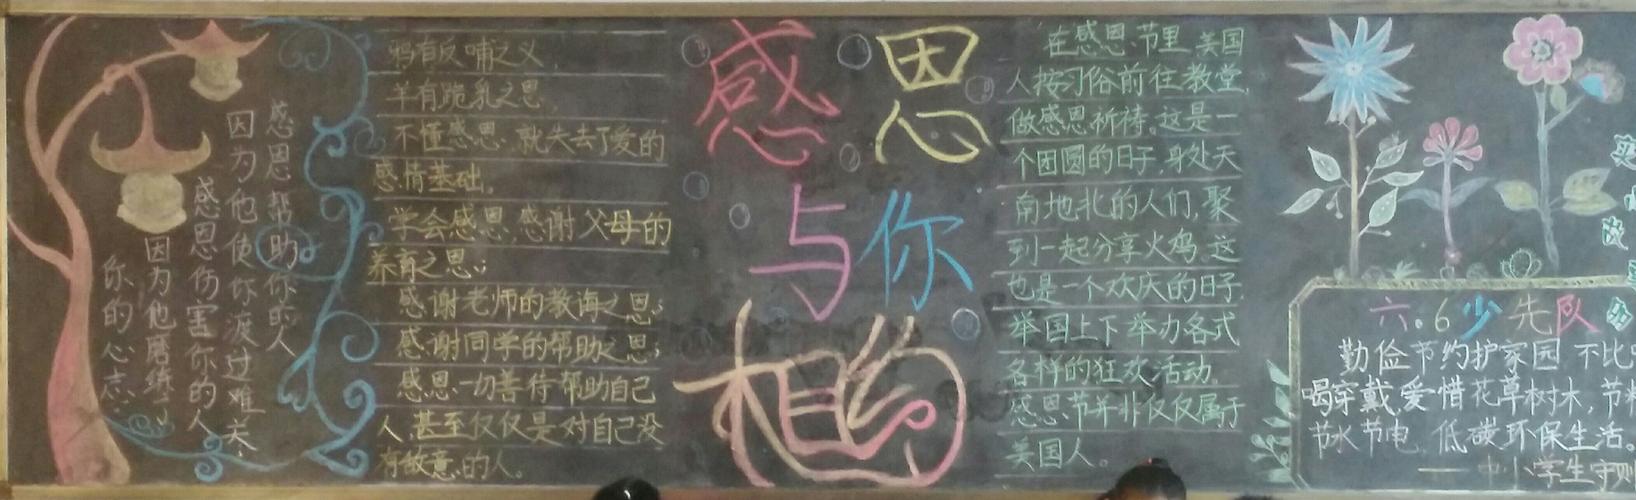 感恩帮助你的人
因为他使你渡过难关.
感恩伤害你的人
因为他磨练了
你的心志.
鸦有反哺之义,
羊有跪乳之恩,
不懂感恩,就失去了爱的
感情基础.
学会感恩,感谢父母的
养育之恩;
感谢老师的教诲之恩;
感谢同学的帮助之恩;
感恩一切善待帮助自己
人,甚至仅仅是对自己没
有敌意的人。
感恩
与你
相约
在感恩节里,美国
人按习俗前往教堂,
做感恩祈祷。这是一
个团圆的日子,身处天
南地北的人们,聚
到一起分享火鸡.这
也是一个欢庆的日子.
举国上下举办各式
各样的狂欢活动.
感恩节并非仅仅属于
美国人。
六.6少先队
勤俭节约护家园 不比
喝穿戴,爱惜花草树木,节
节水节电,低碳环保生活。
——中小学生守则